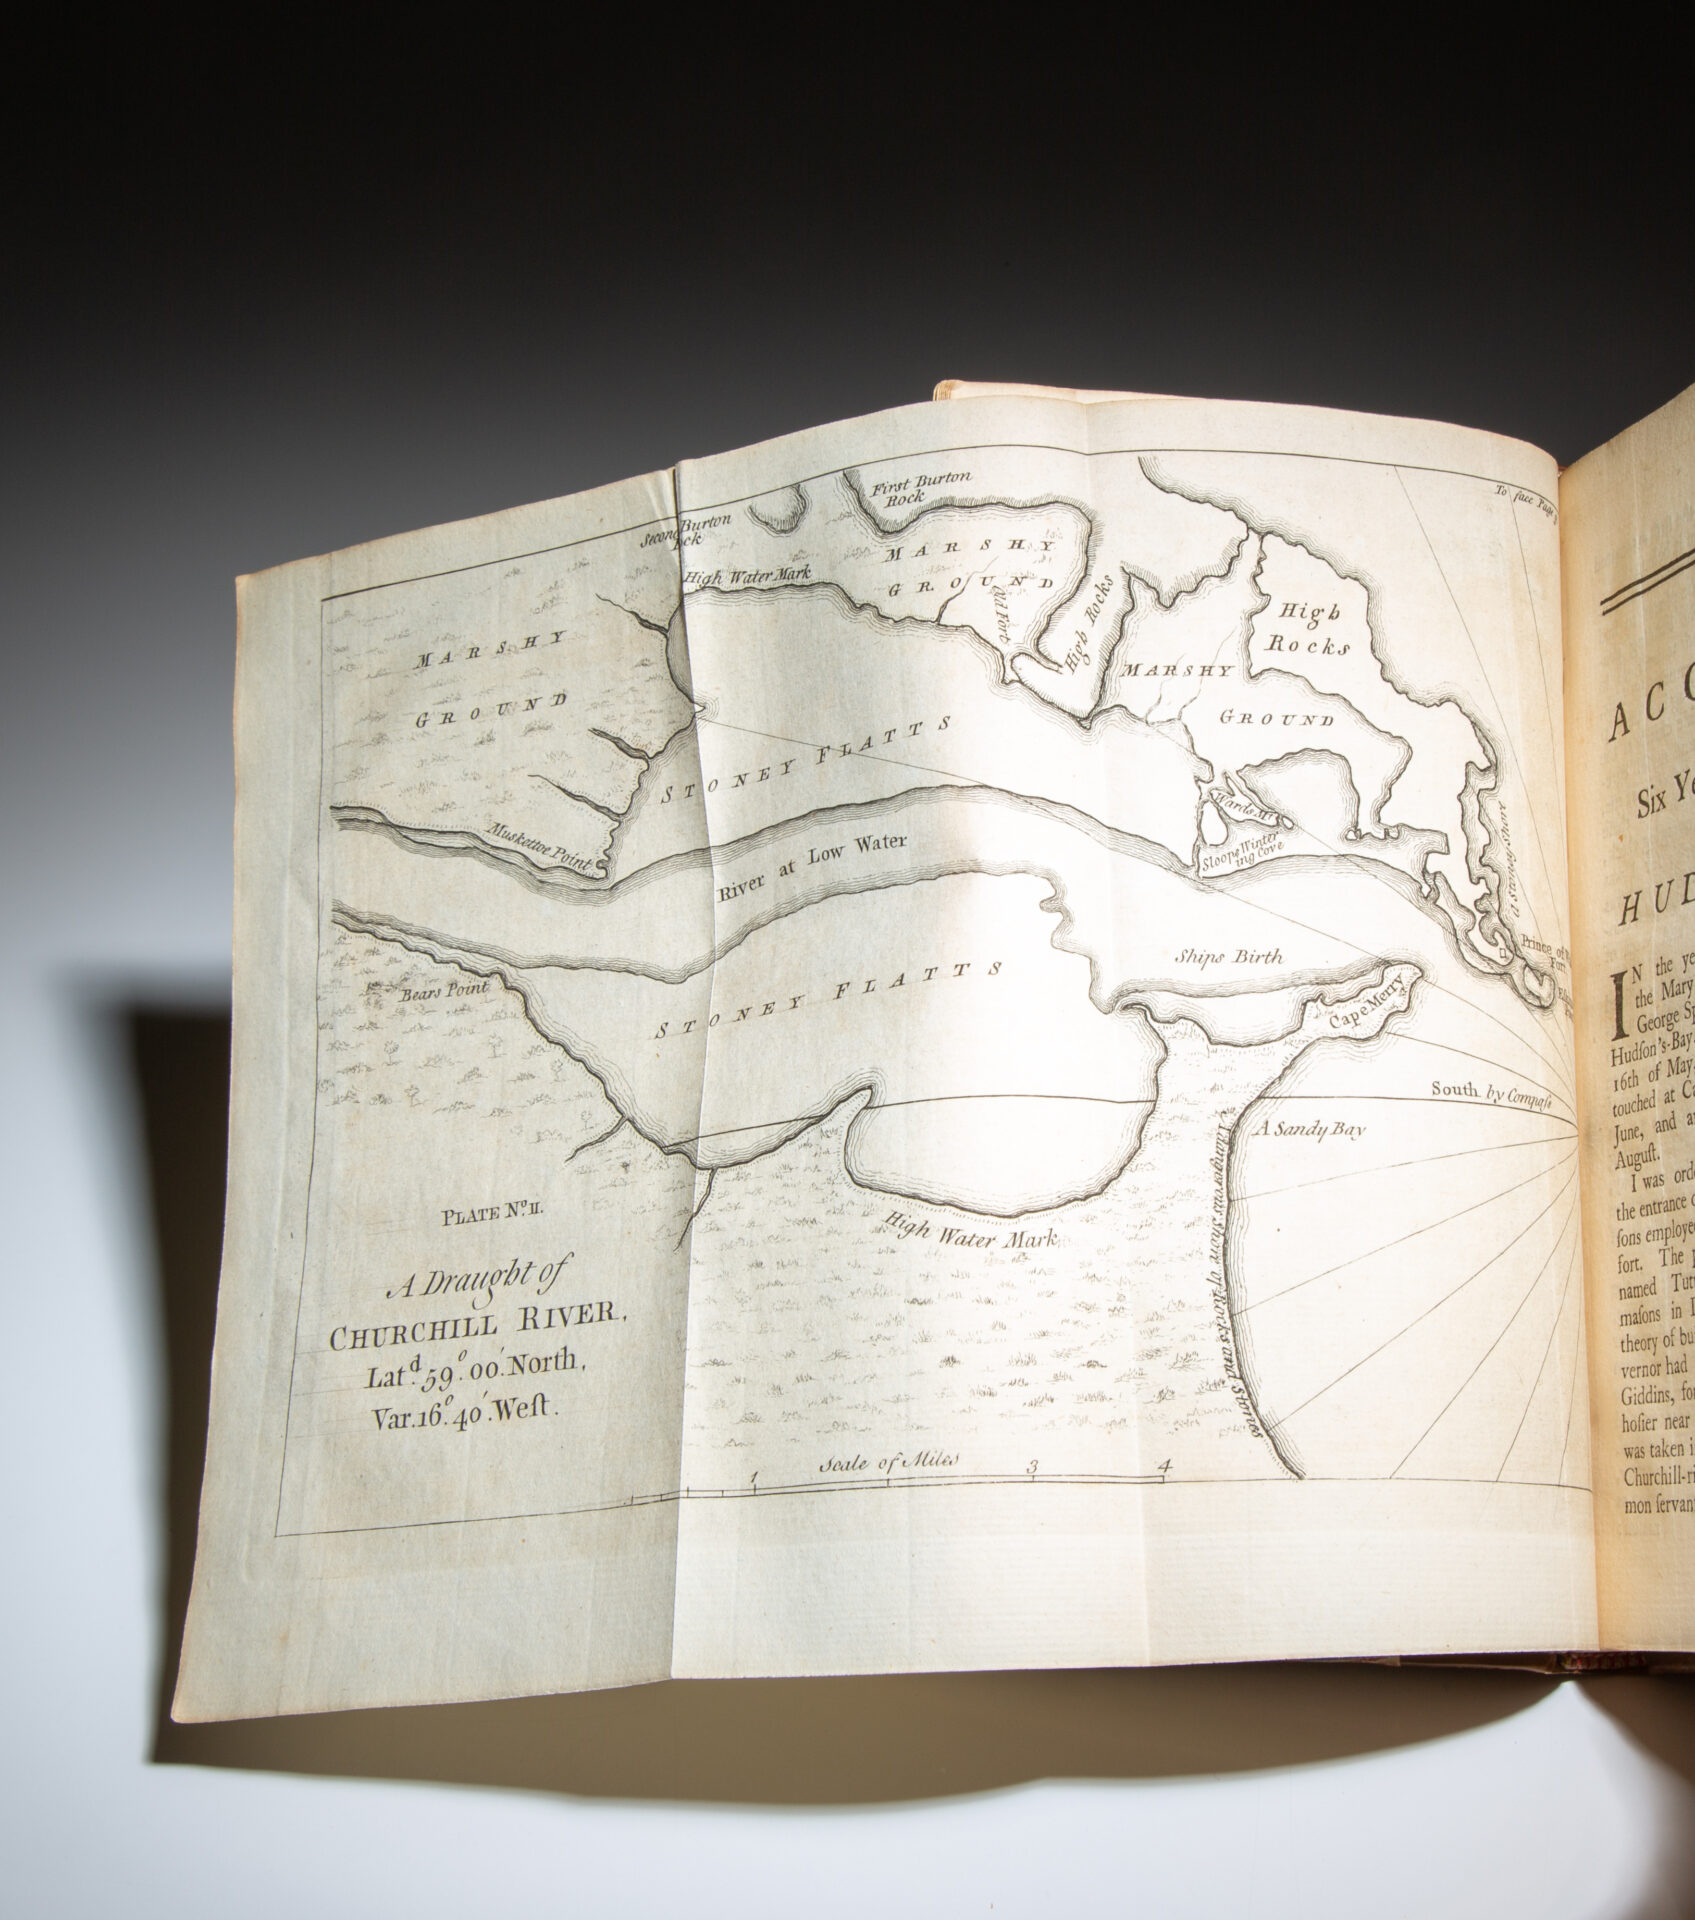 To face Page
First Burton
Rock
Second Burton
High Water Mark
MARSHY
GROUND
Old Fort
High Rocks
High
Rocks
MARSHY
GROUND
MARSHY
GROUND
STONEY FLATTS
Muskettoe Point
River at Low Water
Sloops Winter
ing Cove
Prince of
Fort
Ships Birth
Cape Merry
Bears Point
STONEY FLATTS
South by Compass
A Sandy Bay
A Dangerous Shore of Rocks and Stones
High Water Mark
PLATE No. II.
A Draught of
CHURCHILL RIVER,
Latd. 59°. 00'. North,
Var. 16°. 40'. Weſt.
Scale of Miles
1 3 4
ACC
Six Ye
HUD
IN the ye
the Mary
George Sp
Hudſon's-Bay
16th of May
touched at Ca
June, and a
Auguſt.
I was ord
the entrance o
ſons employe
fort. The p
named Tur
maſons in I
theory of bu
vernor had
Giddins, fo
hoſier near
was taken i
Churchill-ri
mon ſervan